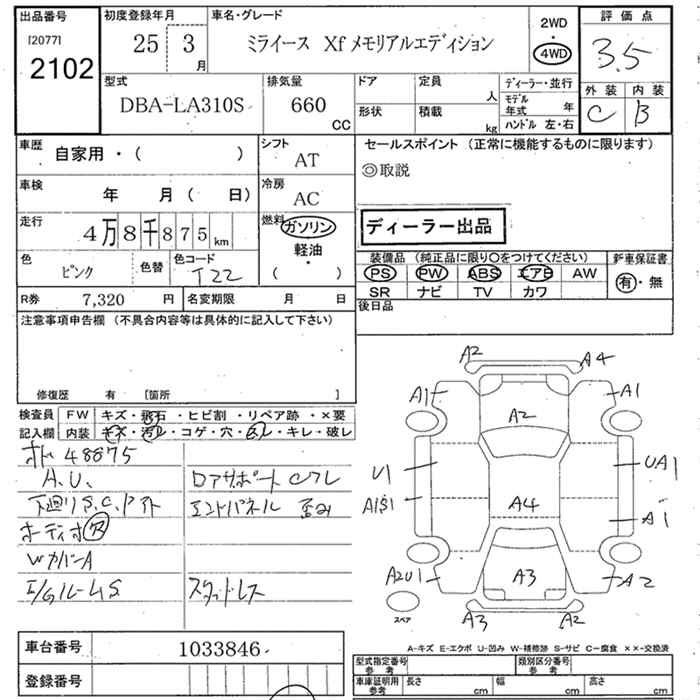 出品番号
[2077]
2102
初度登録年月
25 3 月
車名・グレード
ミライース Xf メモリアルエディション
2WD
・
4WD
評価点
3.5
外装 内装
C B
型式
DBA-LA310S
排気量
660 CC
ドア
形状
定員 人
積載 kg
ディーラー・並行
モデル年式 年
ハンドル 左・右
車歴
自家用・( )
シフト
AT
セールスポイント (正常に機能するものに限ります)
◎取説
車検
年 月( 日)
冷房
AC
走行
4万8千875km
燃料
ガソリン
軽油
・
( )
ディーラー出品
色
ピンク
色替
色コード
T22
装備品 (純正品に限り○をつけてください)
PS PW ABS エアB AW
SR ナビ TV カワ
新車保証書
有・無
R券 7,320 円
名変期限 月 日
後日品
注意事項申告欄 (不具合内容等は具体的に記入して下さい)
修復歴 有 [箇所 ]
検査員記入欄
FW キズ・飛石・ヒビ割・リペア跡・×要
内装 キズ・汚レ・コゲ・穴・スレ・キレ・破レ
48875
A.U.
下廻りS.C.P
ロアサポート Cフレ
エンドパネル 歪み
オーディオ穴
WカバーA
E/Gルーム S
スタッドレス
A2 A4
A1 A2 A1
U1 UA1
A1S1 A4 A1
A2U1 A3 A2
A3 A2
スペア
A-キズ E-エクボ U-凹み W-補修跡 S-サビ C-腐食 ××-交換済
車台番号 1033846
登録番号
型式指定番号 参考
類別区分番号 参考
車庫証明用 参考
長さ cm
幅 cm
高さ cm